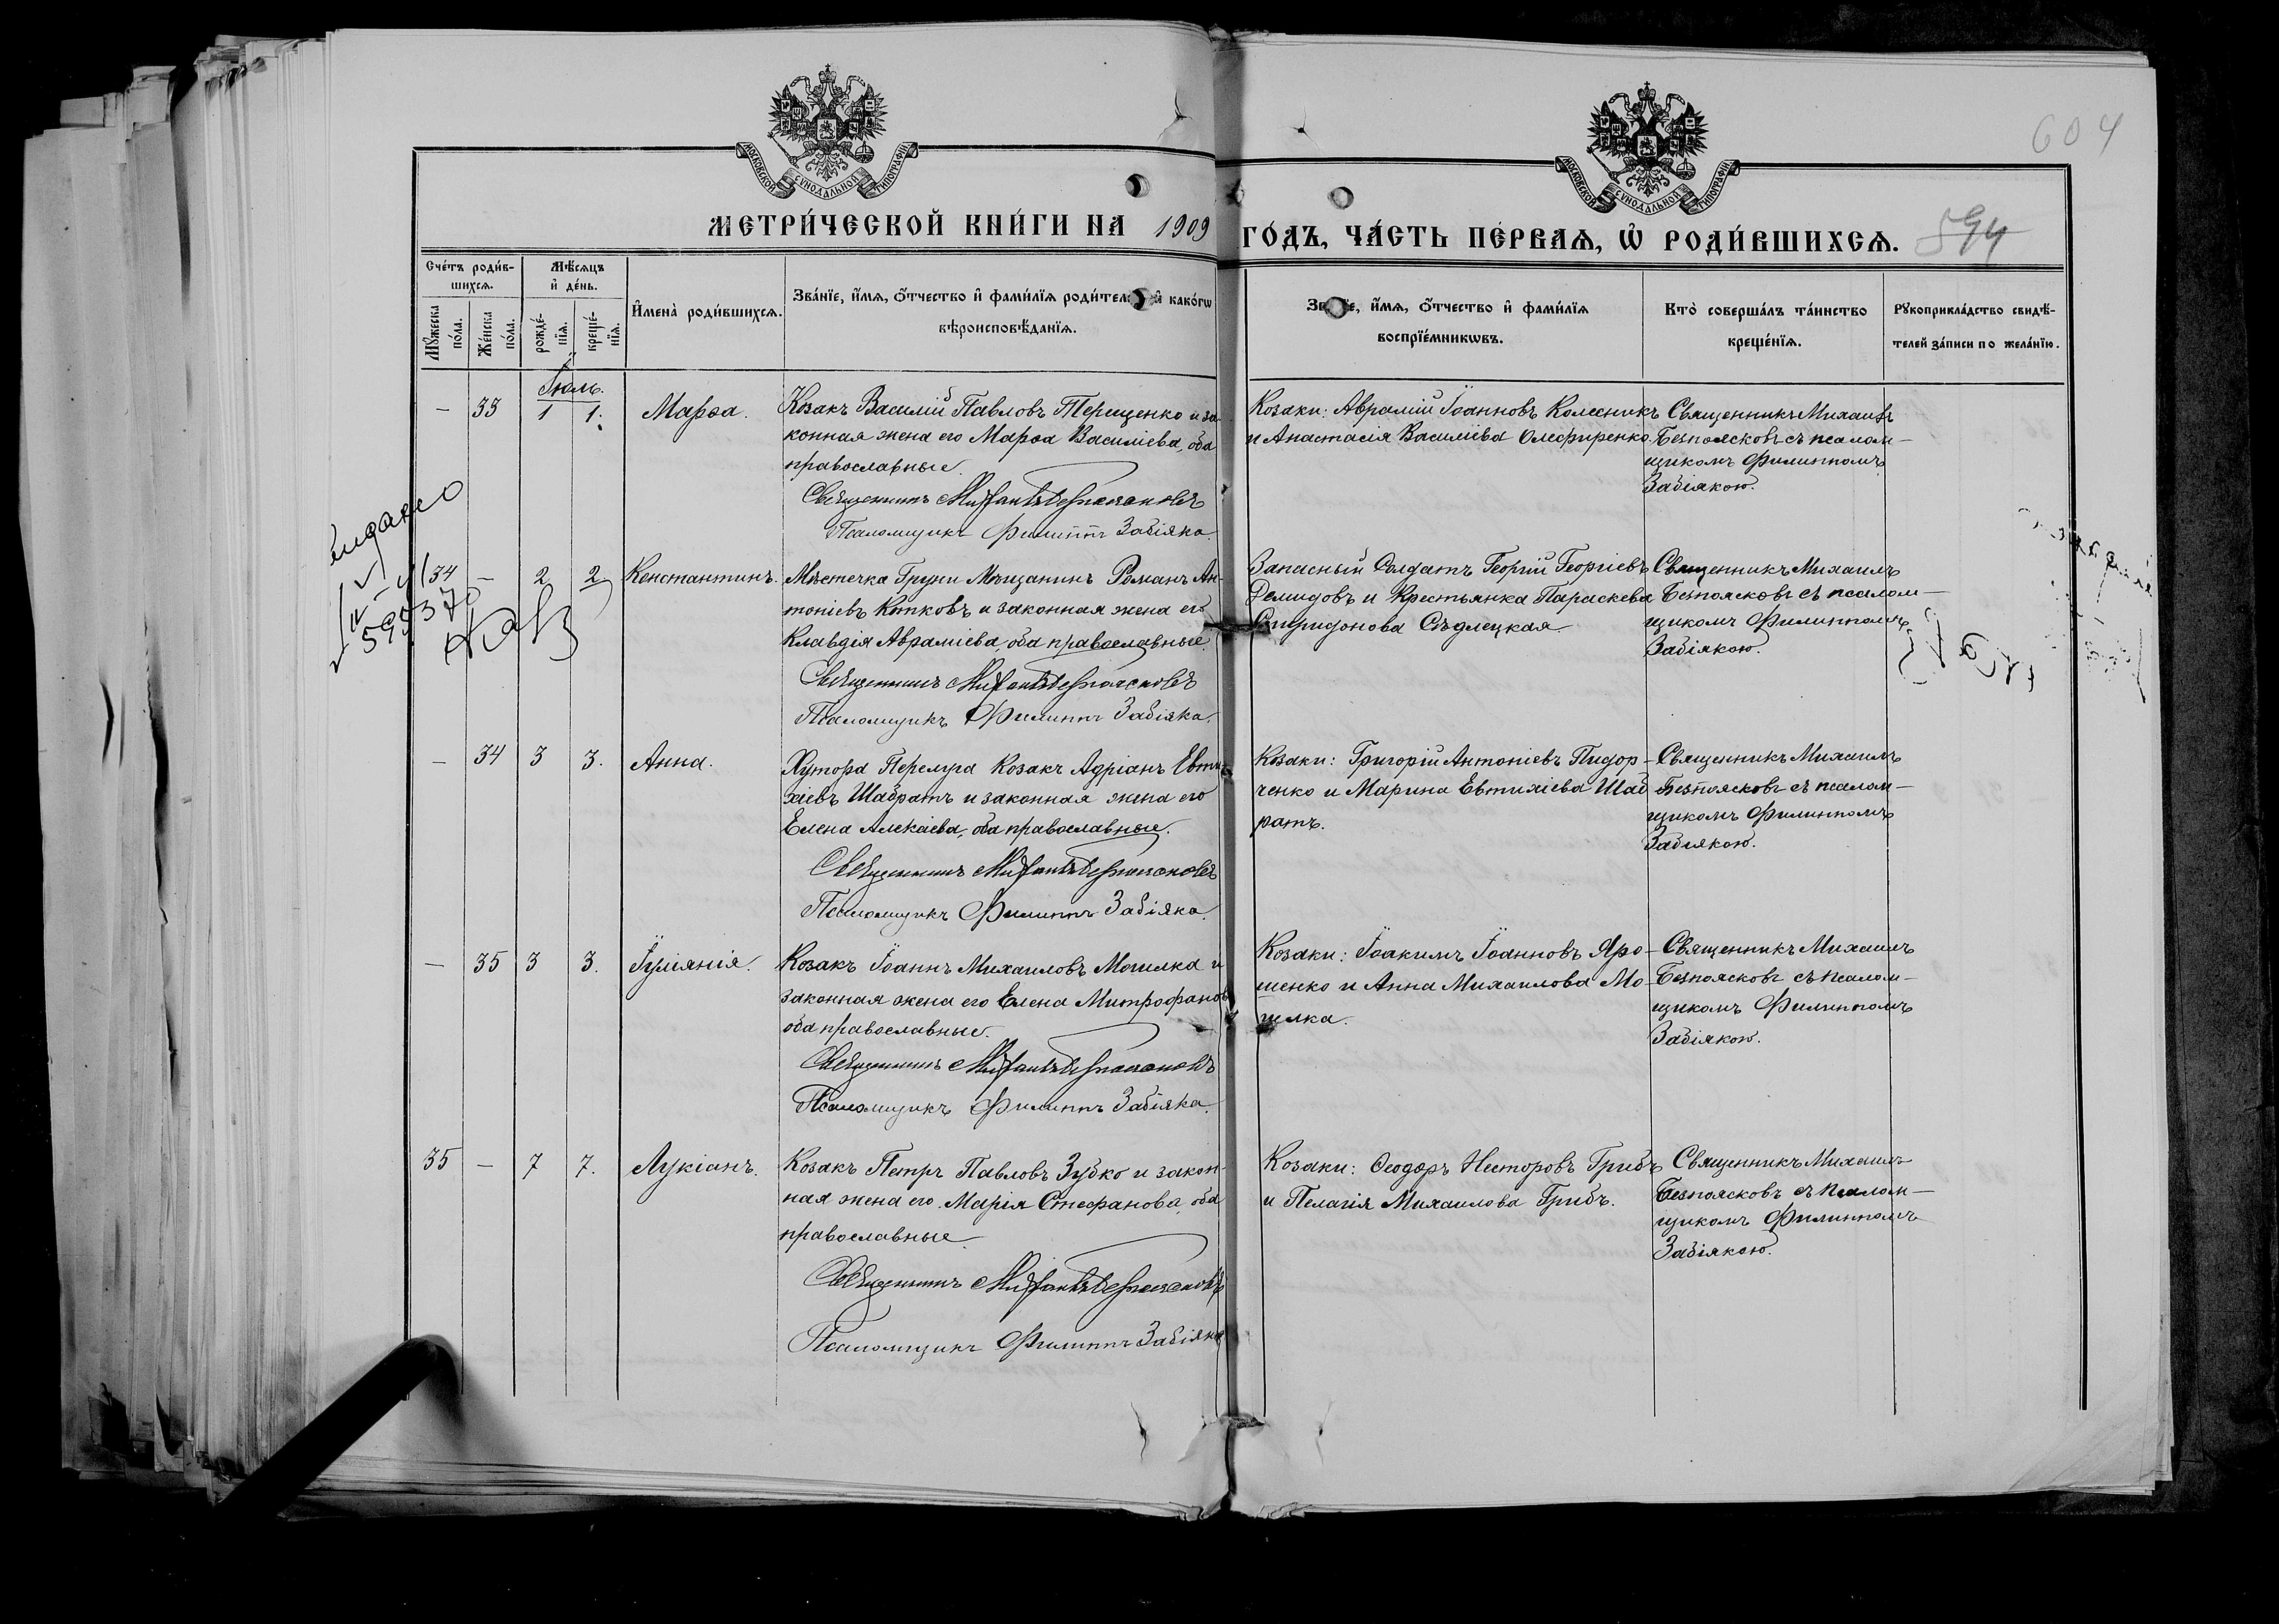 604
МОСКОВСКОЙ СѴНОДАЛЬНОЙ ТИПОГРАФІИ
МОСКОВСКОЙ СѴНОДАЛЬНОЙ ТИПОГРАФІИ
МЕТРИ́ЧЕСКОЙ КНИ́ГИ НА 1909 ГО́ДЪ, ЧА́СТЬ ПЕ́РВАѦ, Ѽ РОДИ́ВШИХСѦ.
594
Сче́тъ роди́в-
шихсѧ.
Мꙋ́жеска по́ла.
Же́нска по́ла.
Мѣ́сѧцъ
и҆ де́нь.
рожде́-
нїѧ.
креще́-
нїѧ.
И҆мена̀ роди́вшихсѧ.
Зва́нїе, и҆́мѧ, ѻ҆́тчество и҆ фами́лїѧ роди́тел и҆ како́гѡ
вѣроисповѣ́данїѧ.
Зв е, и҆́мѧ, ѻ҆́тчество и҆ фами́лїѧ
воспрїе́мникѡвъ.
Кто̀ соверша́лъ та́инство
креще́нїѧ.
Рꙋкоприкла́дство свидѣ́-
телей за́писи по жела́нїю.
Іюль.
— 33 1 1. Марѳа.
Козакъ Василій Павловъ Терещенко и за-
конная жена его Марѳа Василіева, оба
православные.
Священникъ Михаилъ Безпоясковъ
Псаломщикъ Филиппъ Забіяка.
Козаки: Аврамій Іоанновъ Колесникъ
и Анастасія Василіева Олефиренко.
Священникъ Михаилъ
Безпоясковъ съ псалом-
щикомъ Филиппомъ
Забіякою.
видано
595370
34 — 2 2 Константинъ.
Мѣстечка Груни Мѣщанинъ Романъ Ан-
тоніевъ Котковъ и законная жена его
Клавдія Авраміева, оба православные.
Священникъ Михаилъ Безпоясковъ
Псаломщикъ Филиппъ Забіяка.
Запасный Солдатъ Георгій Георгіевъ
Демидовъ и Крестьянка Параскева
Спиридонова Сѣдлецкая.
Священникъ Михаилъ
Безпоясковъ съ псалом-
щикомъ Филиппомъ
Забіякою.
— 34 3 3. Анна.
Хутора Перелуга Козакъ Адріанъ Евти-
хіевъ Шабратъ и законная жена его
Елена Алексіева, оба православные.
Священникъ Михаилъ Безпоясковъ
Псаломщикъ Филиппъ Забіяка.
Козаки: Григорій Антоніевъ Пидор-
ченко и Марина Евтихіева Шаб
ратъ.
Священникъ Михаилъ
Безпоясковъ съ псалом-
щикомъ Филиппомъ
Забіякою.
— 35 3 3. Іуліянія.
Козакъ Іоаннъ Михаиловъ Могилка и
законная жена его Елена Митрофанов
оба православные.
Священникъ Михаилъ Безпоясковъ
Псаломщикъ Филиппъ Забіяка.
Козаки: Іоакимъ Іоанновъ Яро-
шенко и Анна Михаилова Мо-
гилка.
Священникъ Михаилъ
Безпоясковъ съ псалом-
щикомъ Филиппомъ
Забіякою.
35 — 7 7. Лукіанъ.
Козакъ Петръ Павловъ Зубко и закон-
ная жена его Марія Стефанова, оба
православные.
Священникъ Михаилъ Безпоясковъ
Псаломщикъ Филиппъ Забіяка
Козаки: Ѳеодоръ Несторовъ Грибъ
и Пелагія Михаилова Грибъ.
Священникъ Михаилъ
Безпоясковъ съ псалом-
щикомъ Филиппомъ
Забіякою.